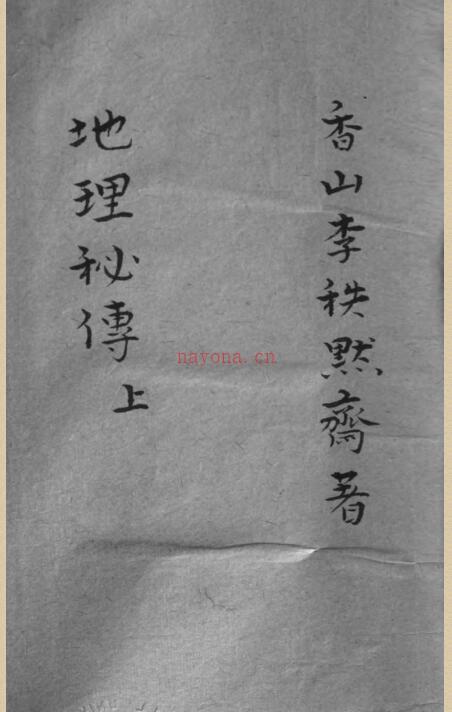 香山李秩黙齋著
地理秘傳 上
nayona.cn